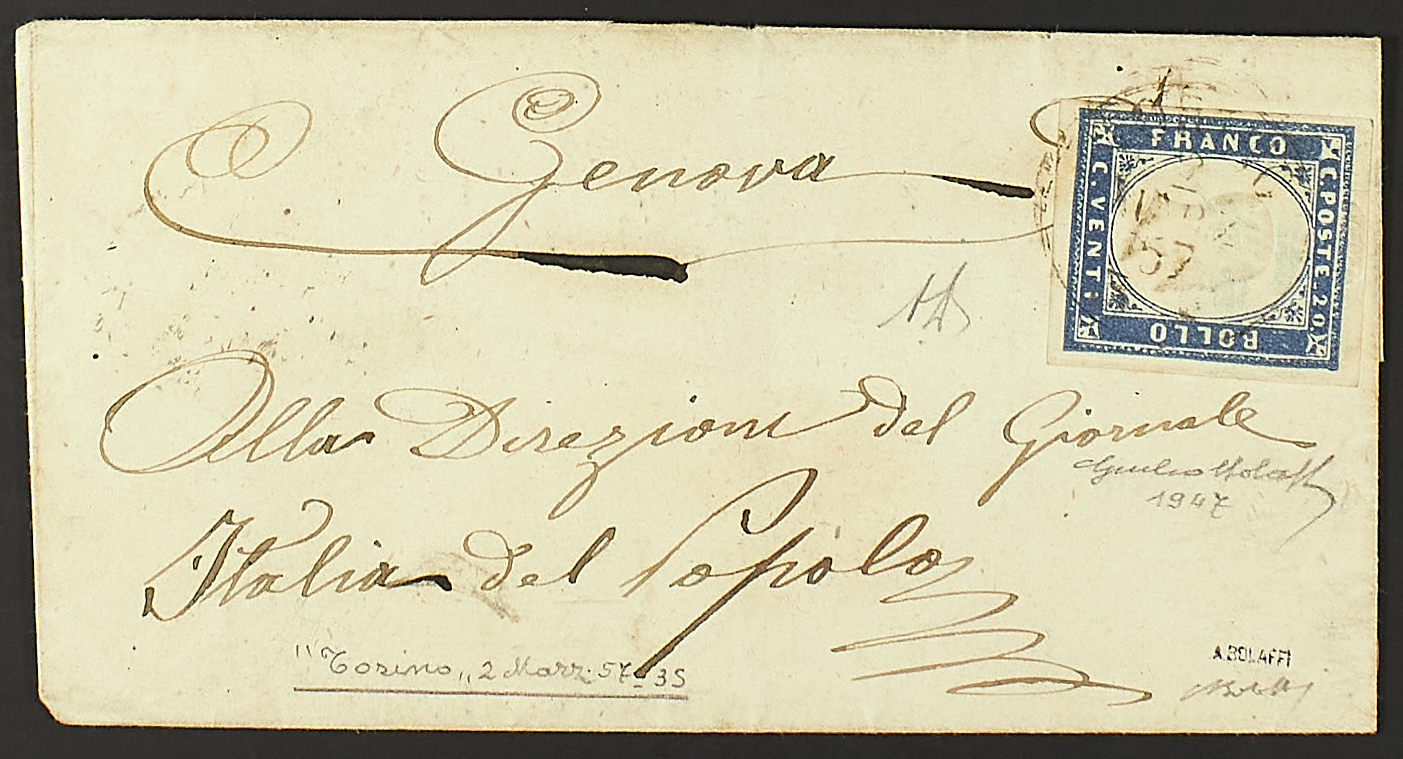 Genova
FRANCO
C. VENTI
C POSTE 20
BOLLO
57
Alla Direzione del Giornale
Giulio Bolaffi
1947
Italia del Popolo
"Torino„ 2 Marz. 57-35
A.BOLAFFI